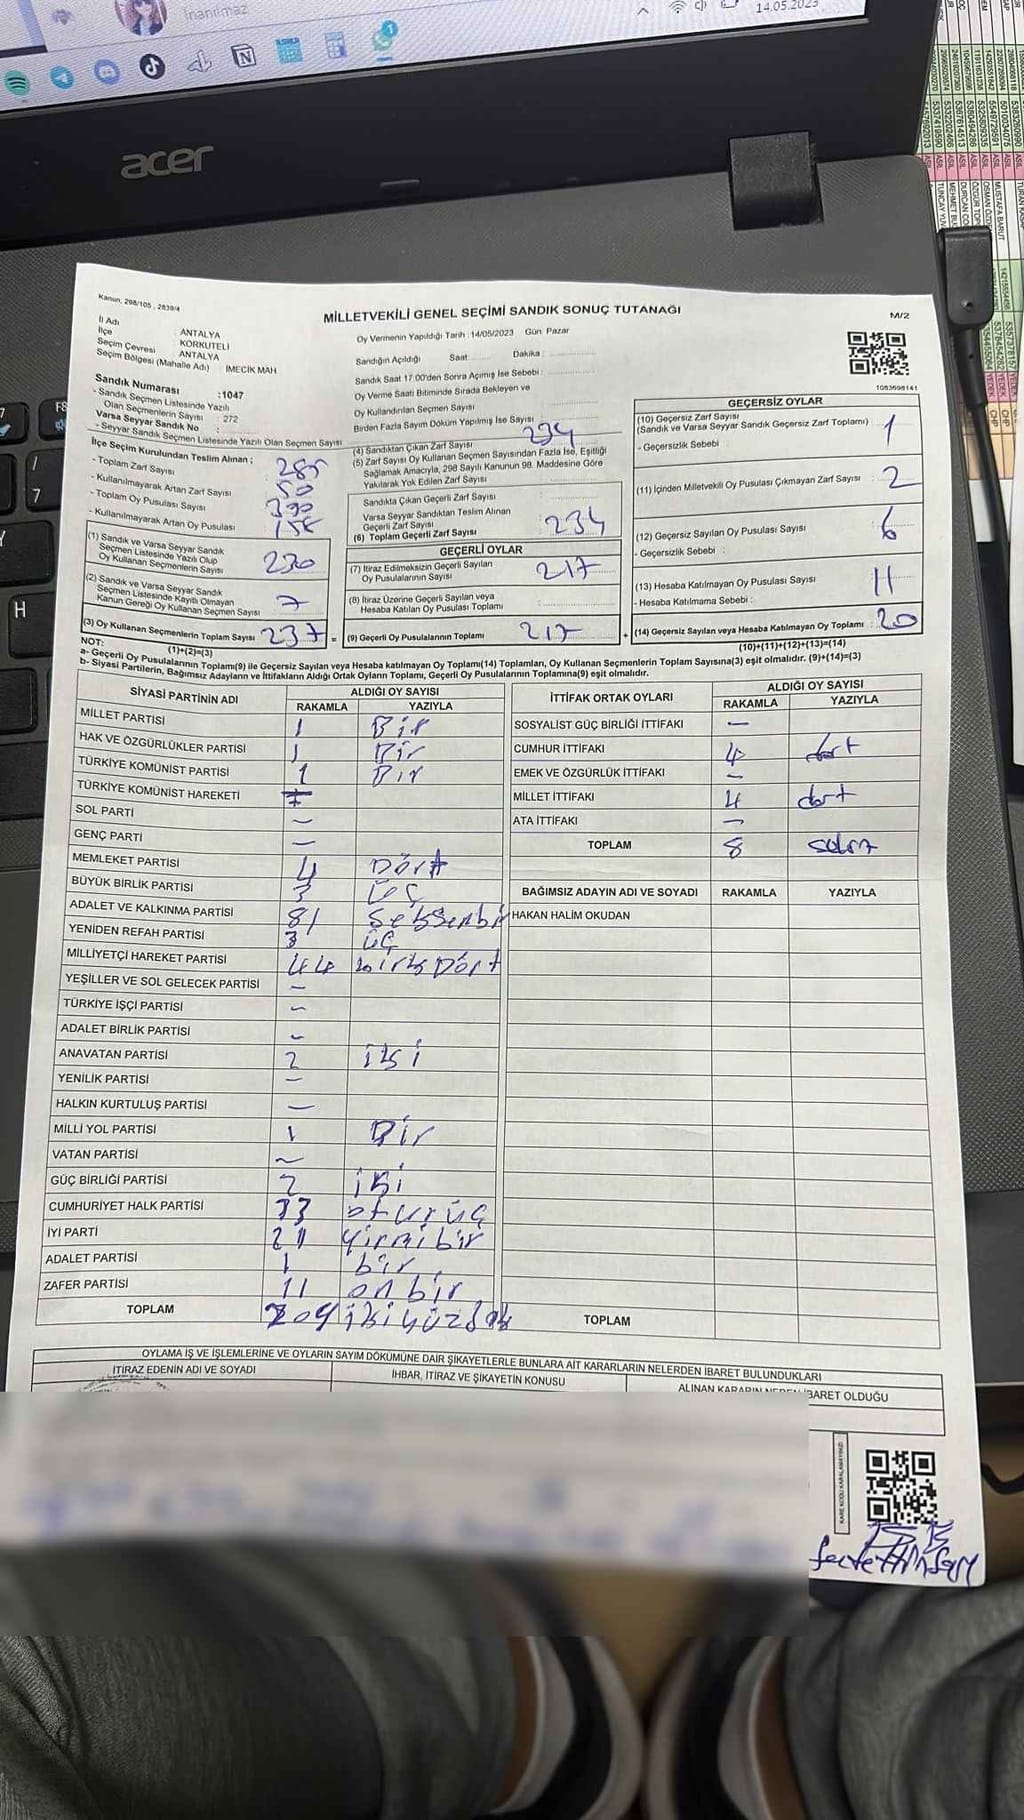 inanılmaz
14.05.2023
acer
Kanun: 298/105 , 2839/4
MİLLETVEKİLİ GENEL SEÇİMİ SANDIK SONUÇ TUTANAĞI
M/2
İl Adı : ANTALYA
İlçe : KORKUTELİ
Seçim Çevresi : ANTALYA
Seçim Bölgesi (Mahalle Adı) : İMECİK MAH
Sandık Numarası :1047
- Sandık Seçmen Listesinde Yazılı Olan Seçmenlerin Sayısı : 272
Varsa Seyyar Sandık No :
- Seyyar Sandık Seçmen Listesinde Yazılı Olan Seçmen Sayısı
Oy Vermenin Yapıldığı Tarih :14/05/2023 Gün Pazar
Sandığın Açıldığı Saat Dakika :
Sandık Saat 17:00'den Sonra Açımış İse Sebebi :
Oy Verme Saati Bitiminde Sırada Bekleyen ve
Oy Kullandırılan Seçmen Sayısı
Birden Fazla Sayım Döküm Yapılmış İse Sayısı :
1083698141
İlçe Seçim Kurulundan Teslim Alınan ;
- Toplam Zarf Sayısı :
- Kullanılmayarak Artan Zarf Sayısı : 50
- Toplam Oy Pusulası Sayısı : 390
- Kullanılmayarak Artan Oy Pusulası
(1) Sandık ve Varsa Seyyar Sandık
Seçmen Listesinde Yazılı Olup
Oy Kullanan Seçmenlerin Sayısı 230
(2) Sandık ve Varsa Seyyar Sandık
Seçmen Listesinde Kayıtlı Olmayan
Kanun Gereği Oy Kullanan Seçmen Sayısı 7
(3) Oy Kullanan Seçmenlerin Toplam Sayısı 237 =
(1)+(2)=(3)
(4) Sandıktan Çıkan Zarf Sayısı 234
(5) Zarf Sayısı Oy Kullanan Seçmen Sayısından Fazla İse, Eşitliği
Sağlamak Amacıyla, 298 Sayılı Kanunun 98. Maddesine Göre
Yakılarak Yok Edilen Zarf Sayısı
Sandıkta Çıkan Geçerli Zarf Sayısı
Varsa Seyyar Sandıktan Teslim Alınan
Geçerli Zarf Sayısı
(6) Toplam Geçerli Zarf Sayısı : 234
GEÇERLİ OYLAR
(7) İtiraz Edilmeksizin Geçerli Sayılan
Oy Pusulalarının Sayısı : 217
(8) İtiraz Üzerine Geçerli Sayılan veya
Hesaba Katılan Oy Pusulası Toplamı :
(9) Geçerli Oy Pusulalarının Toplamı 217 +
GEÇERSİZ OYLAR
(10) Geçersiz Zarf Sayısı
(Sandık ve Varsa Seyyar Sandık Geçersiz Zarf Toplamı) : 1
- Geçersizlik Sebebi :
(11) İçinden Milletvekili Oy Pusulası Çıkmayan Zarf Sayısı : 2
(12) Geçersiz Sayılan Oy Pusulası Sayısı : 6
- Geçersizlik Sebebi :
(13) Hesaba Katılmayan Oy Pusulası Sayısı : 11
- Hesaba Katılmama Sebebi :
(14) Geçersiz Sayılan veya Hesaba Katılmayan Oy Toplamı : 20
(10)+(11)+(12)+(13)=(14)
NOT:
a- Geçerli Oy Pusulalarının Toplamı(9) ile Geçersiz Sayılan veya Hesaba katılmayan Oy Toplamı(14) Toplamları, Oy Kullanan Seçmenlerin Toplam Sayısına(3) eşit olmalıdır. (9)+(14)=(3)
b- Siyasi Partilerin, Bağımsız Adayların ve İttifakların Aldığı Ortak Oyların Toplamı, Geçerli Oy Pusulalarının Toplamına(9) eşit olmalıdır.
SİYASİ PARTİNİN ADI ALDIĞI OY SAYISI
RAKAMLA YAZIYLA
MİLLET PARTİSİ 1 Bir
HAK VE ÖZGÜRLÜKLER PARTİSİ 1 Bir
TÜRKİYE KOMÜNİST PARTİSİ 1 Bir
TÜRKİYE KOMÜNİST HAREKETİ
SOL PARTİ –
GENÇ PARTİ –
MEMLEKET PARTİSİ 4 Dört
BÜYÜK BİRLİK PARTİSİ 3 üç
ADALET VE KALKINMA PARTİSİ 81 Seksenbir
YENİDEN REFAH PARTİSİ 3 üç
MİLLİYETÇİ HAREKET PARTİSİ 44 kırk Dört
YEŞİLLER VE SOL GELECEK PARTİSİ –
TÜRKİYE İŞÇİ PARTİSİ –
ADALET BİRLİK PARTİSİ –
ANAVATAN PARTİSİ 2 iki
YENİLİK PARTİSİ –
HALKIN KURTULUŞ PARTİSİ –
MİLLİ YOL PARTİSİ 1 Bir
VATAN PARTİSİ –
GÜÇ BİRLİĞİ PARTİSİ 2 iki
CUMHURİYET HALK PARTİSİ 33 otuzüç
İYİ PARTİ 21 yirmibir
ADALET PARTİSİ 1 bir
ZAFER PARTİSİ 11 on bir
TOPLAM 209
İTTİFAK ORTAK OYLARI ALDIĞI OY SAYISI
RAKAMLA YAZIYLA
SOSYALİST GÜÇ BİRLİĞİ İTTİFAKI –
CUMHUR İTTİFAKI 4 dört
EMEK VE ÖZGÜRLÜK İTTİFAKI –
MİLLET İTTİFAKI 4 dört
ATA İTTİFAKI –
TOPLAM 8 sekiz
BAĞIMSIZ ADAYIN ADI VE SOYADI RAKAMLA YAZIYLA
HAKAN HALİM OKUDAN
TOPLAM
OYLAMA İŞ VE İŞLEMLERİNE VE OYLARIN SAYIM DÖKÜMÜNE DAİR ŞİKAYETLERLE BUNLARA AİT KARARLARIN NELERDEN İBARET BULUNDUKLARI
İTİRAZ EDENİN ADI VE SOYADI İHBAR, İTİRAZ VE ŞİKAYETİN KONUSU ALINAN KARARIN NEDEN İBARET OLDUĞU
KARE KODU KARALAMAYINIZ!